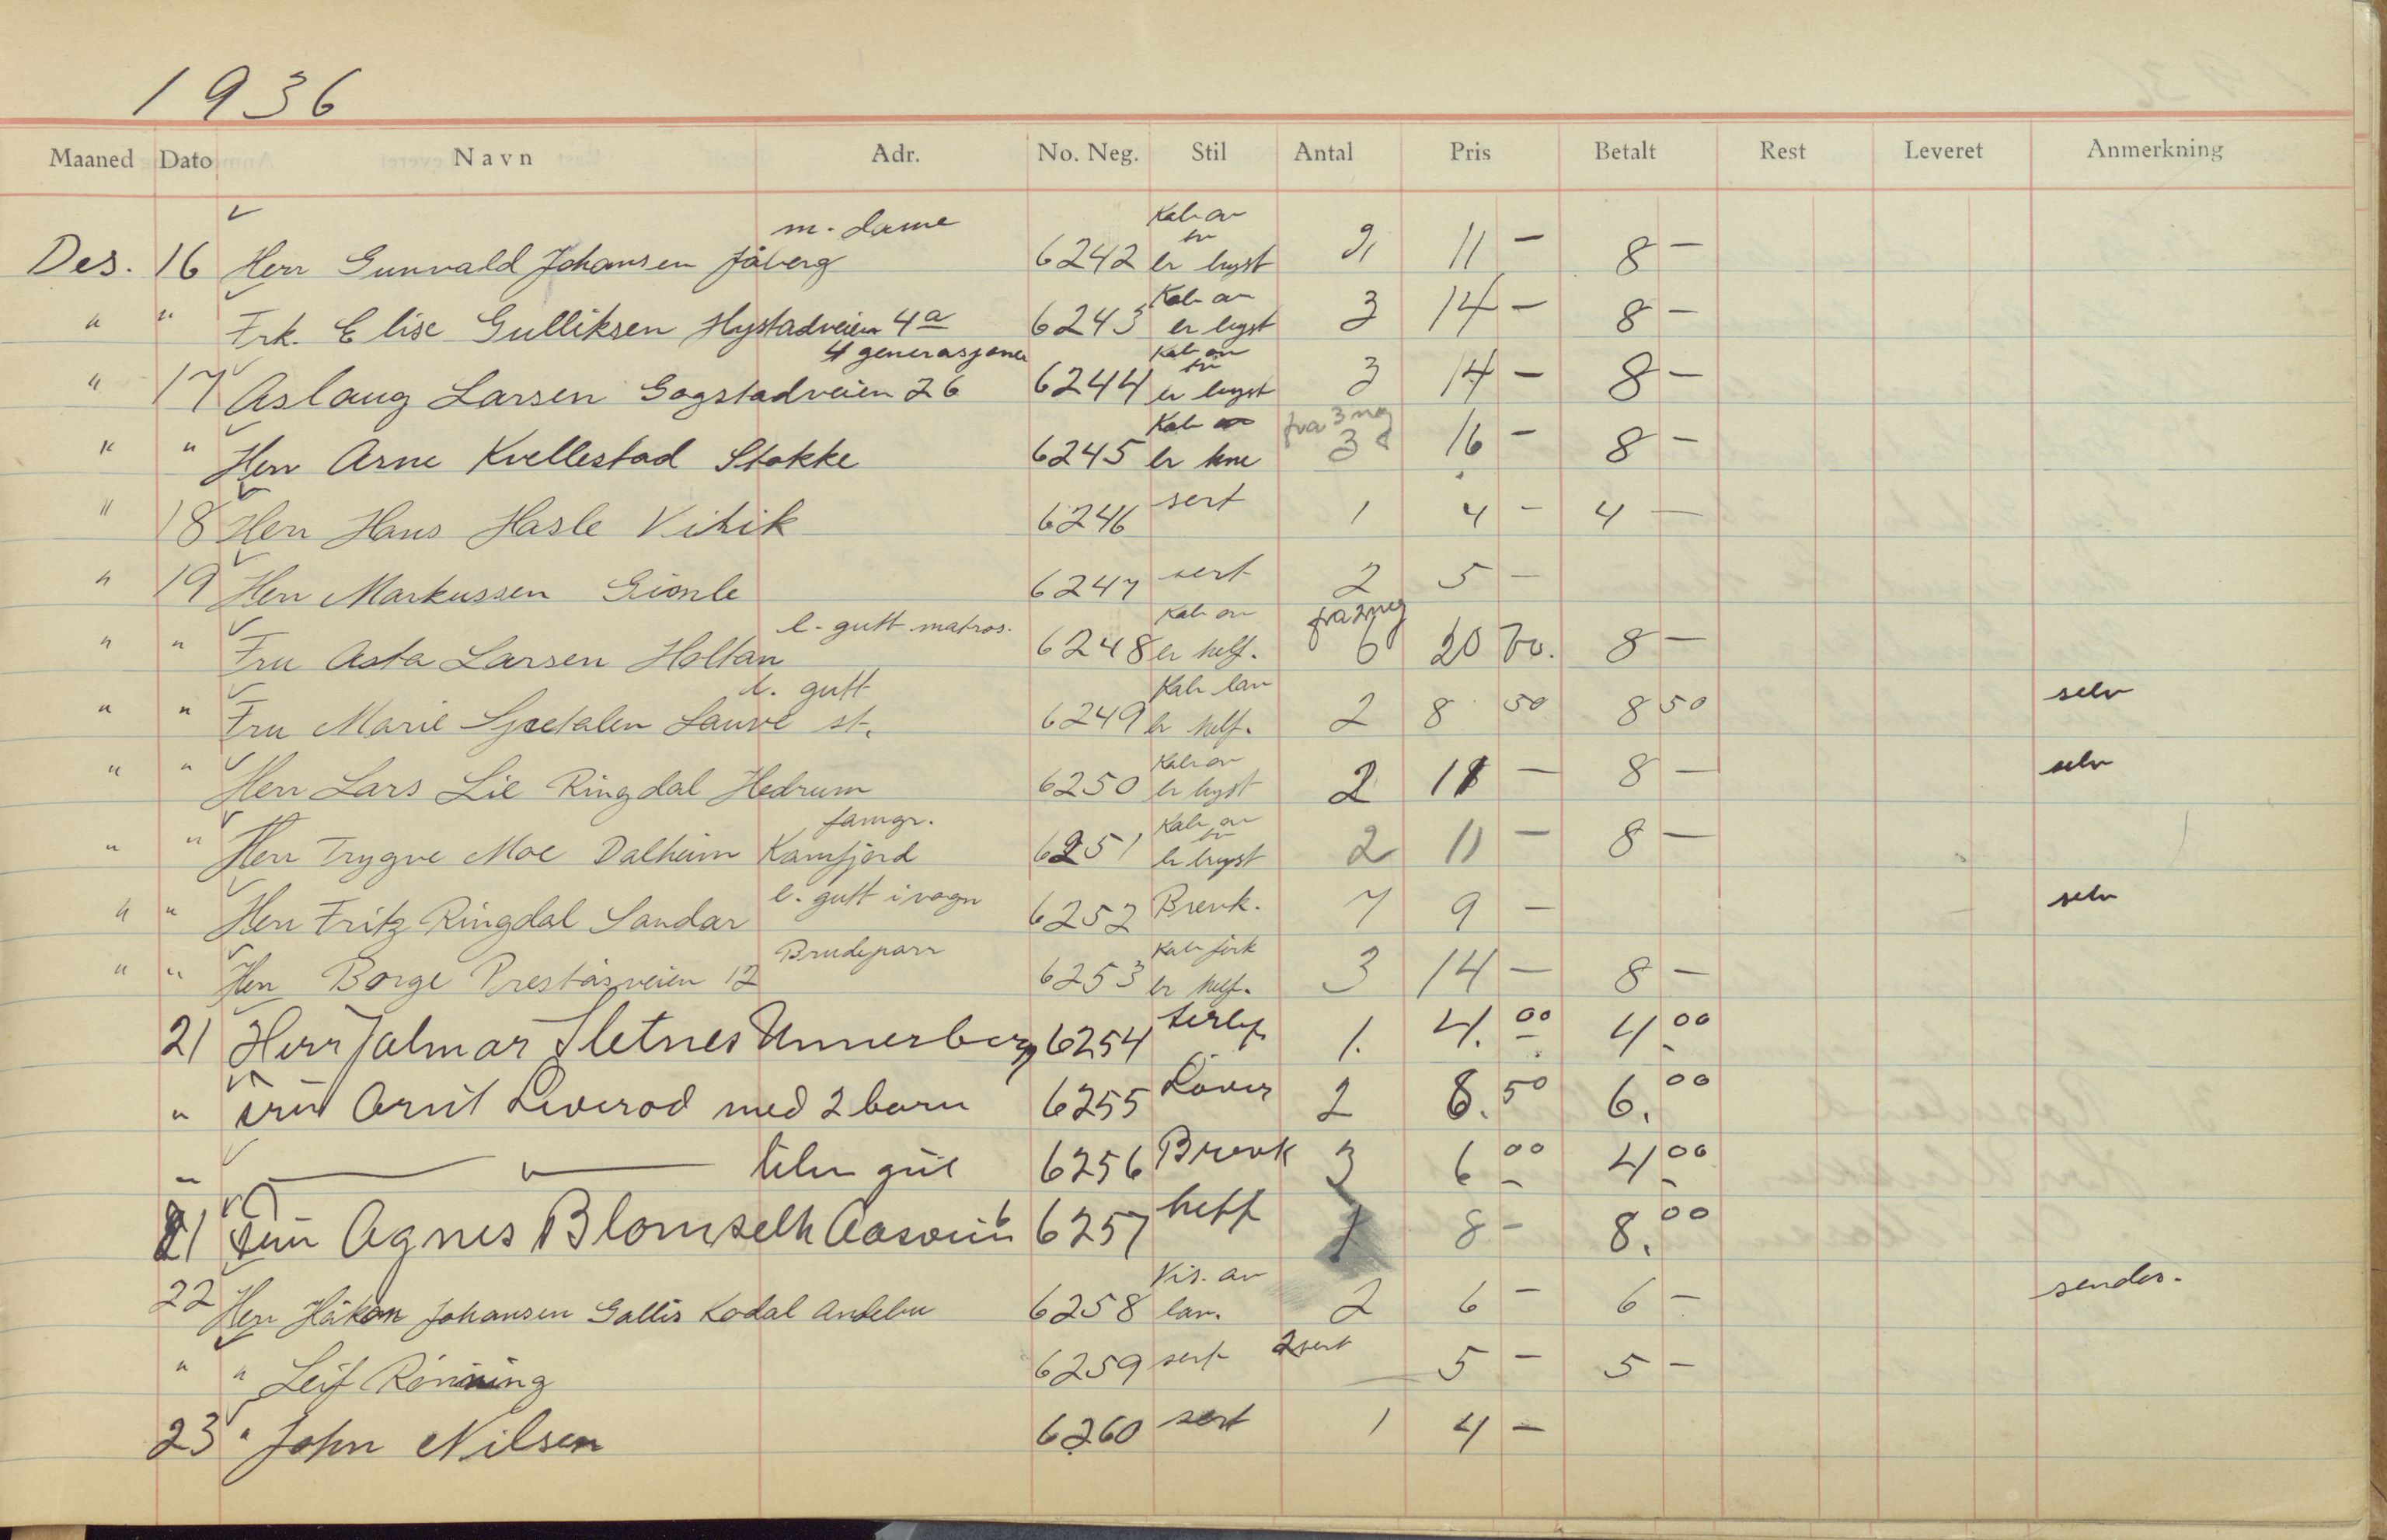 1936
Maaned Dato Navn Adr. No. Neg. Stil Antal Pris Betalt Rest Leveret Anmerkning
m. dame Kab. av
Des. 16 Herr Gunvald Johansen Jåberg 6242 er bryst 2 11 — 8 —
Kab. av
" " Frk. Elise Gulliksen Hystadveien 4a 6243 er bryst 3 14 — 8 —
4 generasjoner Kab. av
" 17 Aslaug Larsen Gogstadveien 26 6244 er bryst 3 14 — 8 —
Kab. fra 3 neg
" " Herr Arne Kvellestad Stokke 6245 er kne 3 16 — 8 —
" 18 Herr Hans Hasle Vitik 6246 sert 1 4 — 4 —
" 19 Herr Markussen Gionle 6247 sert 2 5 —
l. gutt matros. Kab. av fra 2 neg
" " Fru Asta Larsen Holtan 6248 er helf. 6 20 8 —
l. gutt Kab. lav
" " Fru Marie Sjætalen Lauve st. 6249 er helf. 2 8 50 8 50 selv
Kab. av
" " Herr Lars Lie Ringdal Hedrum 6250 er bryst 2 11 — 8 — selv
famgr. Kab. av
" " Herr Trygve Moe Dalheim Kamfjord 6251 er bryst 2 11 — 8 —
l. gutt i vogn
" " Herr Fritz Ringdal Sandar 6252 Brevk. 7 9 — selv
Brudepar Kab.
" " Herr Borge Preståsveien 12 6253 er helf. 3 14 — 8 —
21 Herr Jalmar Sletnes Unnerberg 6254 1. 4.00 4.00
" Arvit Liverod med 2 barn 6255 2 8.50 6.00
" — " — 6256 Brevk 3 6 00 4.00
21 Agnes Blomselh 6257 helf 1 8 — 8.00
Vis. av
22 Herr Håkon Johansen Gallis Kodal Andebu 6258 lav. 2 6 — 6 — sendes.
" " Leif Rönning 6259 sert 2 sert 5 — 5 —
23 " John Nilsen 6260 sert 1 4 —